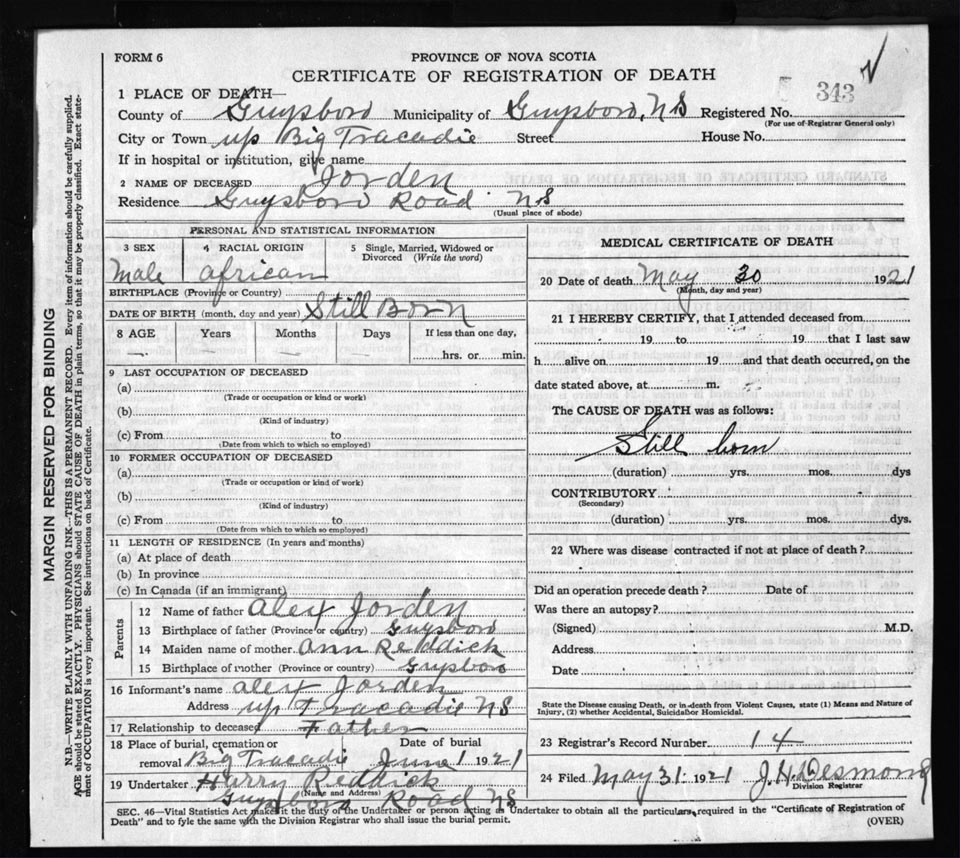 FORM 6
PROVINCE OF NOVA SCOTIA
CERTIFICATE OF REGISTRATION OF DEATH
343
1 PLACE OF DEATH—
County of Guysboro Municipality of Guysboro, NS Registered No.
(For use of Registrar General only)
City or Town up Big Tracadie Street House No.
If in hospital or institution, give name
2 NAME OF DECEASED Jorden
Residence Guysboro Road NS
(Usual place of abode)
PERSONAL AND STATISTICAL INFORMATION
3 SEX 4 RACIAL ORIGIN 5 Single, Married, Widowed or Divorced (Write the word)
male african
BIRTHPLACE (Province or Country)
DATE OF BIRTH (month, day and year) Still Born
8 AGE Years Months Days If less than one day,
— — — hrs. or min.
9 LAST OCCUPATION OF DECEASED
(a)
(Trade or occupation or kind or work)
(b)
(Kind of industry)
(c) From to
(Date from which to which so employed)
10 FORMER OCCUPATION OF DECEASED
(a)
(Trade or occupation or kind of work)
(b)
(Kind of industry)
(c) From to
(Date from which to which employed)
11 LENGTH OF RESIDENCE (In years and months)
(a) At place of death
(b) In province
(c) In Canada (if an immigrant)
Parents
12 Name of father alex Jorden
13 Birthplace of father (Province or country) Guysboro
14 Maiden name of mother ann Reddick
15 Birthplace of mother (Province or country) Guysboro
16 Informant's name alex Jorden
Address up Tracadie NS
17 Relationship to deceased Father
18 Place of burial, cremation or removal Big Tracadie Date of burial June 1 1921
19 Undertaker Harry Reddick
(Name and Address)
Guysboro Road NS
MEDICAL CERTIFICATE OF DEATH
20 Date of death May 30 1921
(Month, day and year)
21 I HEREBY CERTIFY, that I attended deceased from
19 to 19 that I last saw
h alive on 19 and that death occurred, on the
date stated above, at m.
The CAUSE OF DEATH was as follows:
Still born
(duration) yrs. mos. dys
CONTRIBUTORY
(Secondary)
(duration) yrs. mos. dys.
22 Where was disease contracted if not at place of death?
Did an operation precede death? Date of
Was there an autopsy?
(Signed) M.D.
Address
Date
State the Disease causing Death, or in death from Violent Causes, state (1) Means and Nature of
Injury, (2) whether Accidental, Suicidal or Homicidal.
23 Registrar's Record Number 14
24 Filed May 31 1921 J. H. Desmond
Division Registrar
SEC. 46—Vital Statistics Act makes it the duty of the Undertaker or person acting as Undertaker to obtain all the particulars required in the "Certificate of Registration of
Death" and to fyle the same with the Division Registrar who shall issue the burial permit. (OVER)
MARGIN RESERVED FOR BINDING
N.B.—WRITE PLAINLY WITH UNFADING INK—THIS IS A PERMANENT RECORD. Every item of information should be carefully supplied.
AGE should be stated EXACTLY. PHYSICIANS should STATE CAUSE OF DEATH in plain terms, so that it may be properly classified. Exact state-
ment of OCCUPATION is very important. See instructions on back of Certificate.